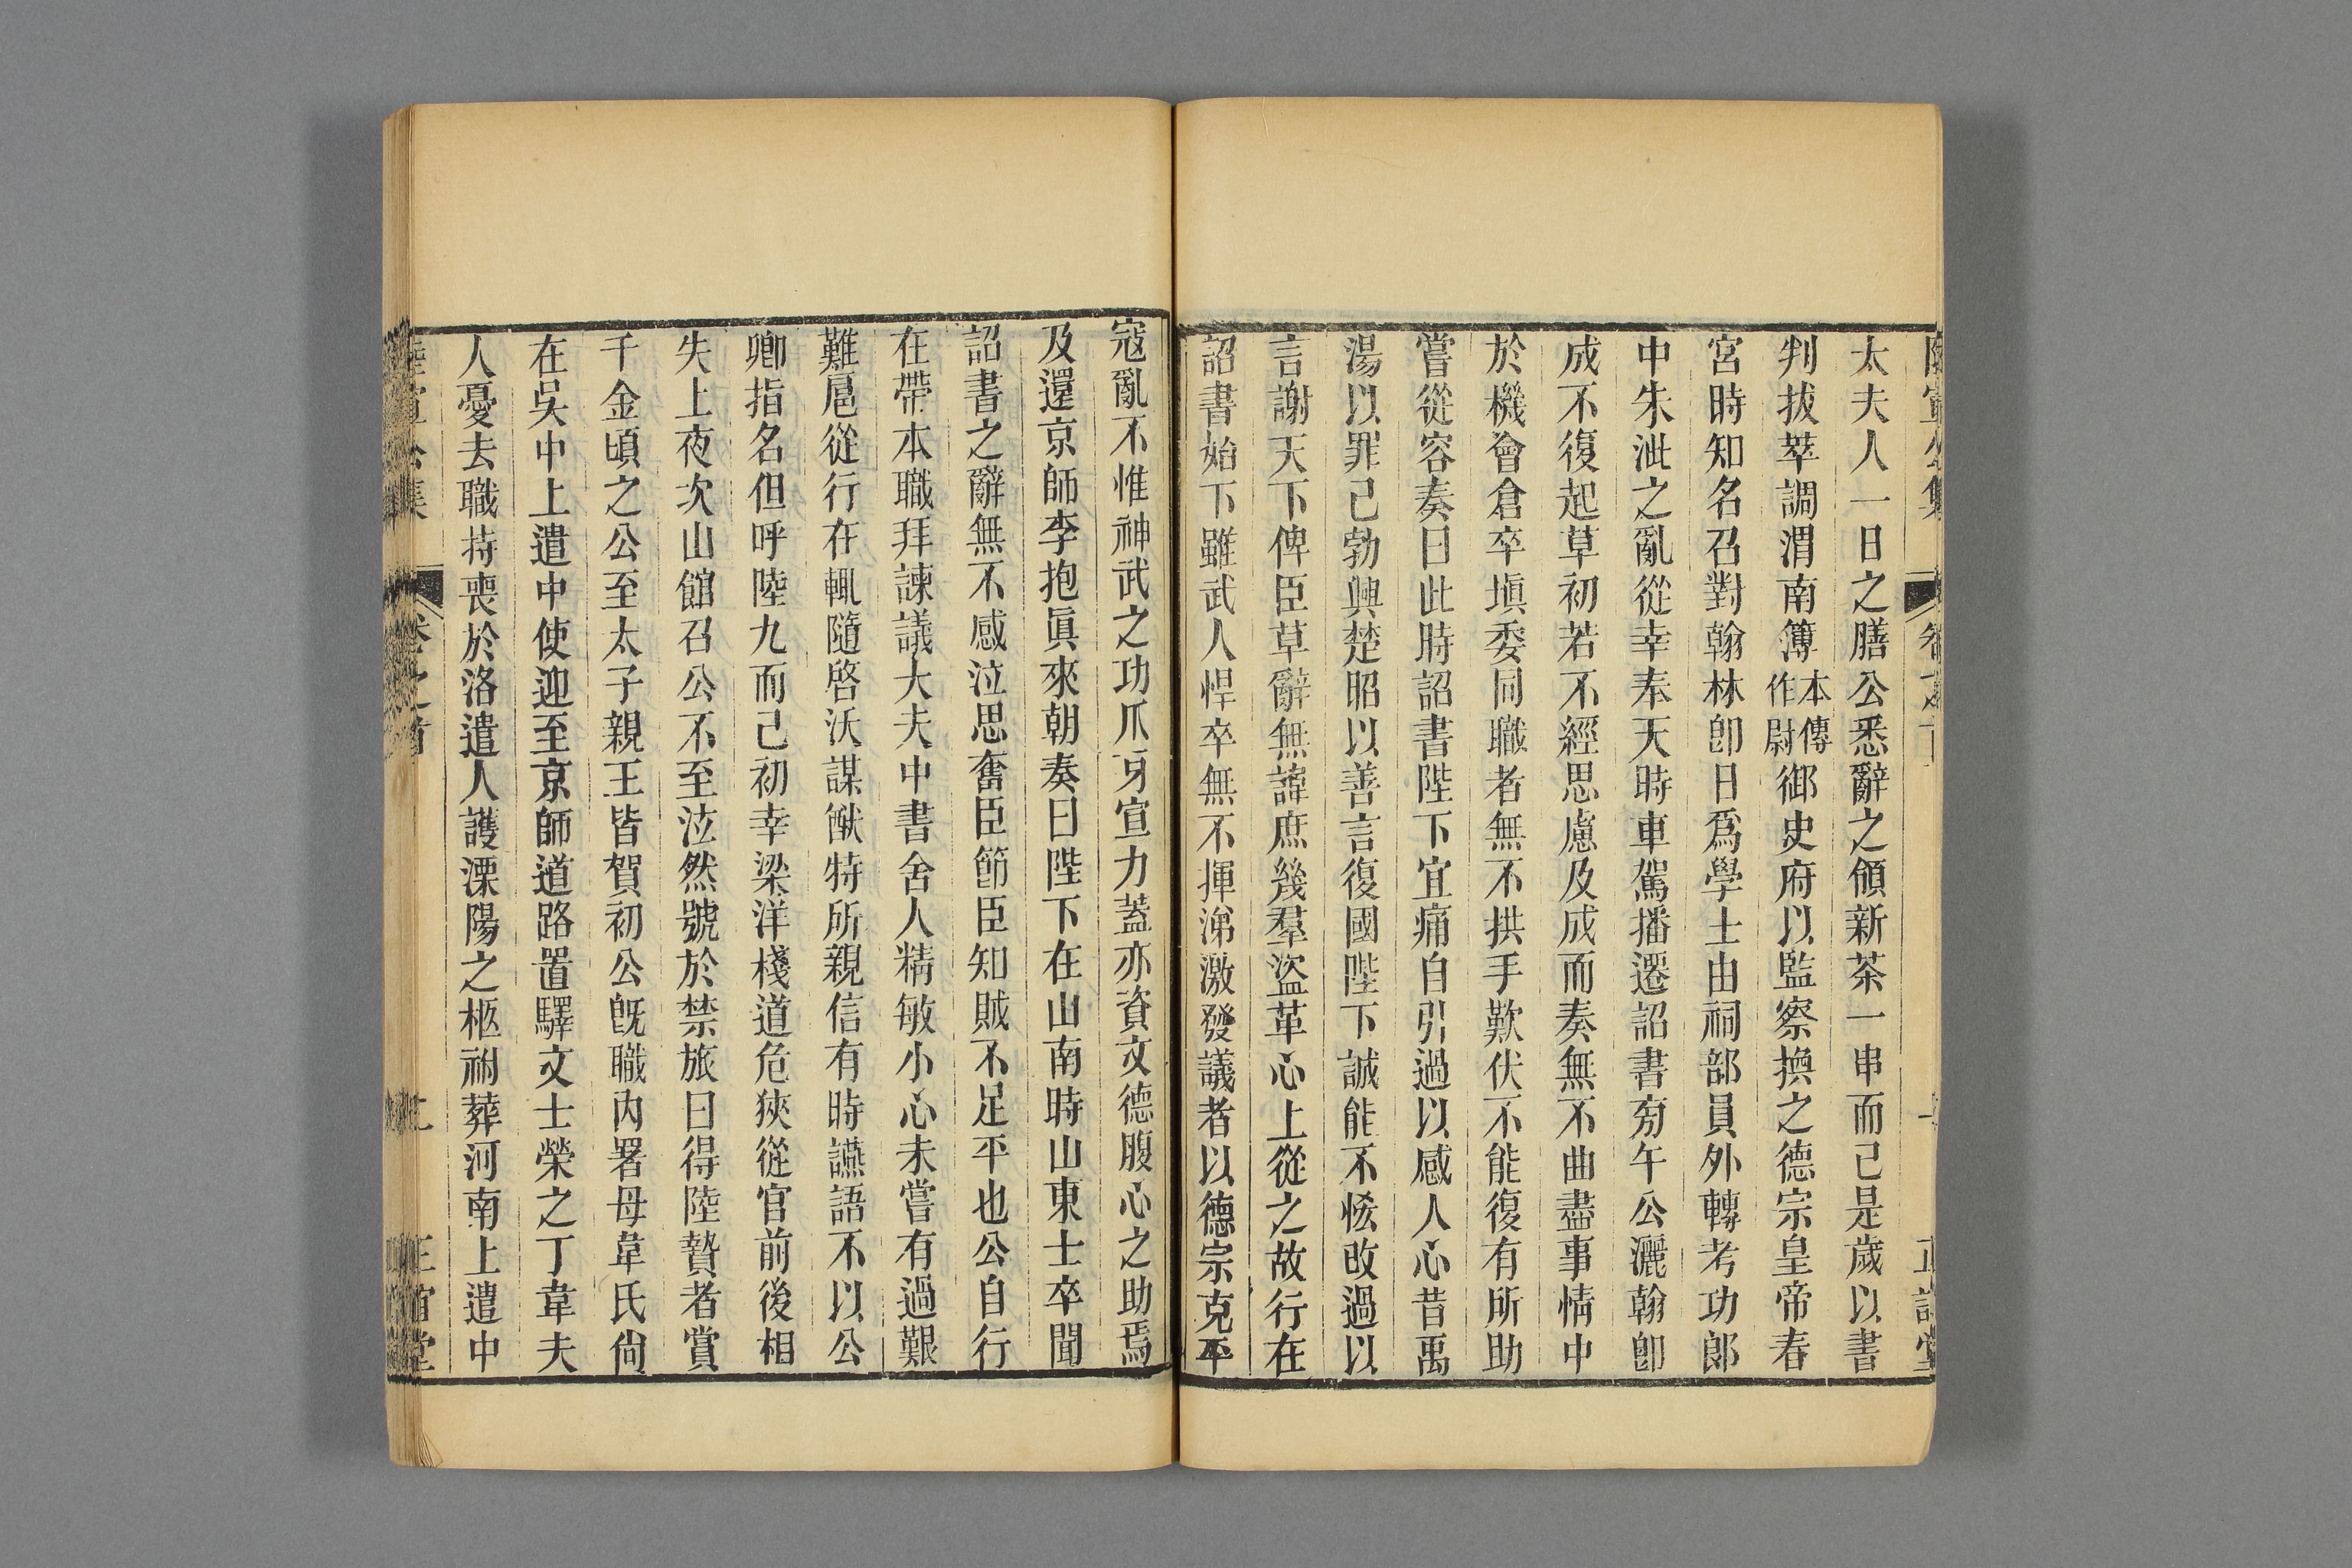 太夫人一日之膳公悉辭之領新茶一串而己是歲以書
判拔萃調渭南簿本傳作尉御史府以監察換之德宗皇帝春
宮時知名召對翰林卽日爲學士由祠部員外轉考功郞
中朱泚之亂從幸奉天時車駕播遷詔書旁午公灑翰卽
成不復起草初若不經思慮及成而奏無不曲盡事情中
於機會倉卒塡委同職者無不拱手歎伏不能復有所助
嘗從容奏曰此時詔書陛下宜痛自引過以感人心昔禹
湯以罪己勃興楚昭以善言復國陛下誠能不恡改過以
言謝天下俾臣草辭無諱庶幾羣盜革心上從之故行在
詔書始下雖武人悍卒無不揮涕激發議者以德宗克平
寇亂不惟神武之功爪牙宣力蓋亦資文德腹心之助焉
及還京師李抱眞來朝奏曰陛下在山南時山東士卒聞
詔書之辭無不感泣思奮臣節臣知賊不足平也公自行
在帶本職拜諫議大夫中書舍人精敏小心未嘗有過艱
難扈從行在輒隨啓沃謀猷特所親信有時讌語不以公
卿指名但呼陸九而己初幸梁洋棧道危狹從官前後相
失上夜次山館召公不至泣然號於禁旅曰得陸贄者賞
千金頃之公至太子親王皆賀初公旣職內署母韋氏尙
在吳中上遣中使迎至京師道路置驛文士榮之丁韋夫
人憂去職持喪於洛遣人護溧陽之柩祔葬河南上遣中
陸宣公集
卷之首